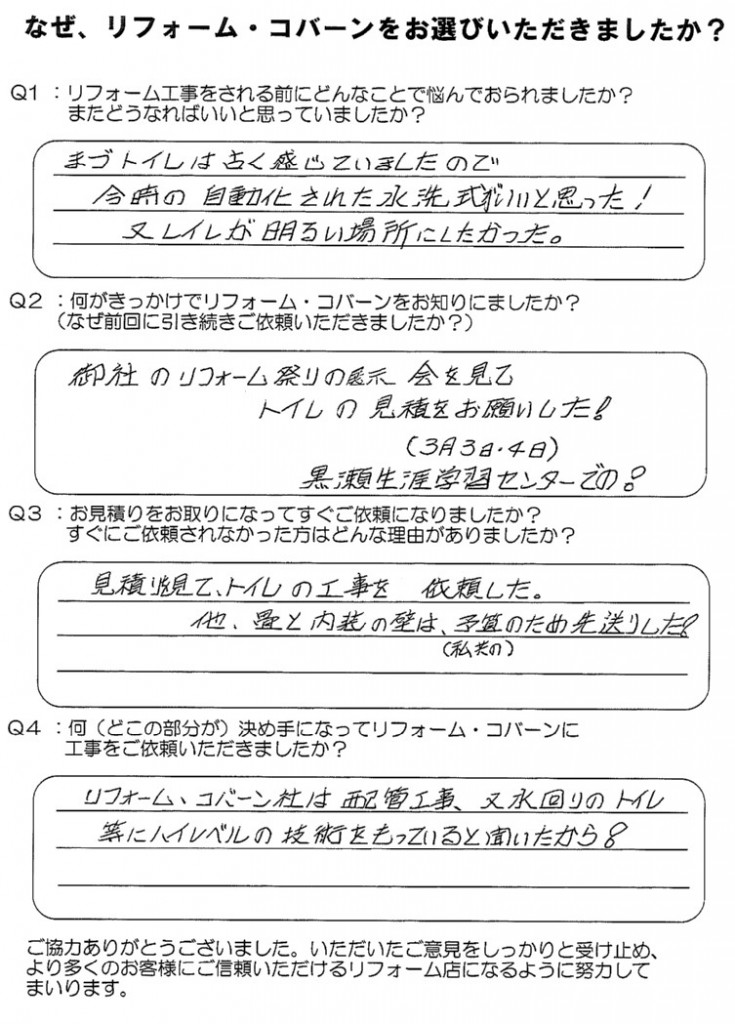 なぜ、リフォーム・コバーンをお選びいただきましたか？
Q1：リフォーム工事をされる前にどんなことで悩んでおられましたか？
またどうなればいいと思っていましたか？
まづトイレは古く感じていましたので
今時の自動化された水洗式がいいと思った！
又トイレが明るい場所にしたかった。
Q2：何がきっかけでリフォーム・コバーンをお知りにましたか？
（なぜ前回に引き続きご依頼いただきましたか？）
御社のリフォーム祭りの展示会を見て
トイレの見積をお願いした！
（3月3日・4日）
黒瀬生涯学習センターでの！
Q3：お見積りをお取りになってすぐご依頼になりましたか？
すぐにご依頼されなかった方はどんな理由がありましたか？
見積り見て、トイレの工事を 依頼した。
他、畳と内装の壁は、予算のため先送りした！
（私共の）
Q4：何（どこの部分が）決め手になってリフォーム・コバーンに
工事をご依頼いただきましたか？
リフォーム、コバーン社は配管工事、又水回りのトイレ
等にハイレベルの技術をもっていると聞いたから！
ご協力ありがとうございました。いただいたご意見をしっかりと受け止め、
より多くのお客様にご信頼いただけるリフォーム店になるように努力して
まいります。